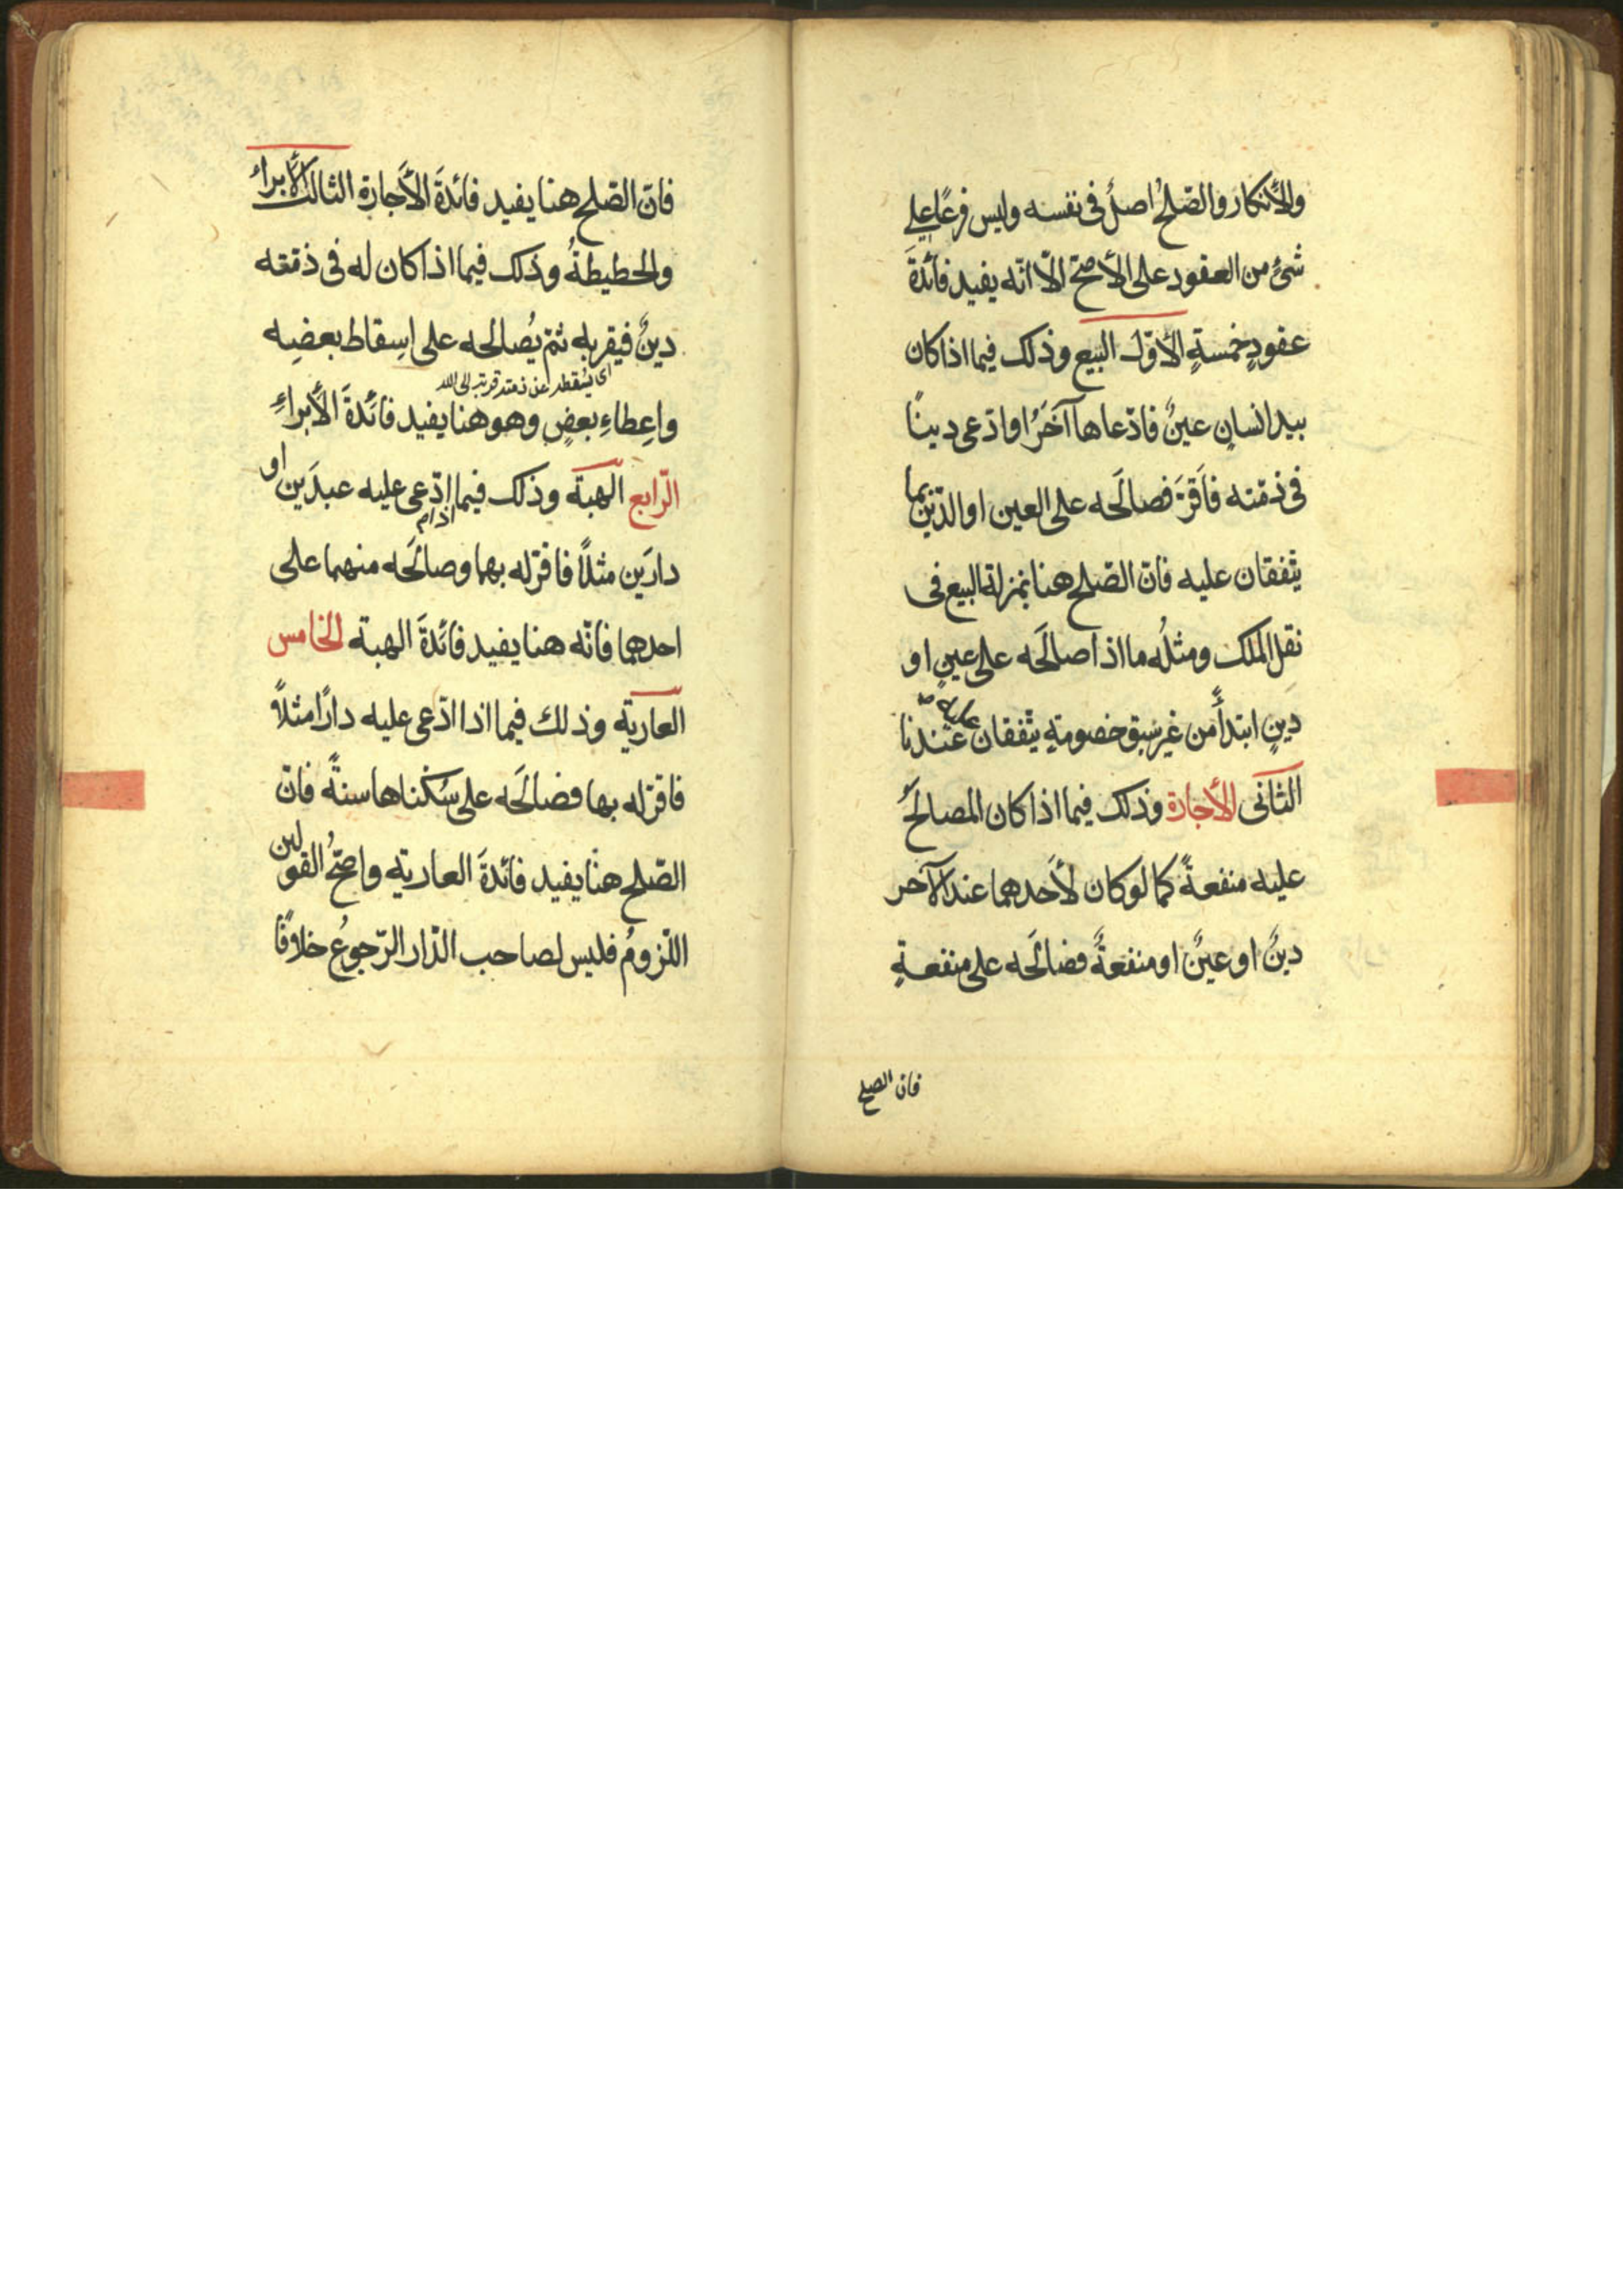 والأنكار والصّلحُ اصلٌ فى نفسه وليس فرعًا على
شئ من العقود على الأصحّ الّا انّه يفيد فائدةَ
عقودٍ خمسةٍ الأوّل البيع وذلك فيما اذا كان
بيد انسانٍ عينٌ فادّعاها آخَرُ او ادّعى دينًا
فى ذمّته فاَقرَّ فصالَحه على العين او الدّين بما
يتّفقان عليه فانّ الصّلح هنا بمنزلة البيع فى
نقل الملك ومثلُه ما اذا صالَحه على عينٍ او
دينٍ ابتدأً من غير سَبق خصومةٍ يتّفقان عليه صح عندنا
الثّانى الأجارة وذلك فيما اذا كان المصالَحُ
عليه منفعةً كما لو كان لأحَدهما عند الآخر
دينٌ او عينٌ او منفعةٌ فصالَحه على منفعةٍ
فان الصلح
فانّ الصّلح هنا يفيد فائدةَ الأَجارة الثالث الأبراءُ
والحطيطةُ وذلك فيما اذا كان له فى ذمّته
دينٌ فيقر به ثمّ يُصالحه على اسِقاط بعضِه
اى يسقطه عن ذمته قربة الى الله
واعِطاءِ بعضٍ وهو هنا يفيد فائَدةَ الأَبراءِ
الرّابع الهبة وذلك فيما ادّعى عليه عبدَين او
اذا م
دارَين مثلاً فاقرّ له بهما وصالَحه منهما على
احدهما فانّه هنا يفيد فائَدةَ الهبة الخامس
العارية وذلك فيما اذا ادّعى عليه دارًا مثلاً
فاقرّ له بها فصالَحه على سُكناها سنةً فانّ
الصّلح هنا يفيد فائدةَ العارية واصحّ القولين
اللّزومُ فليس لصاحب الدّار الرّجوعُ خلافًا